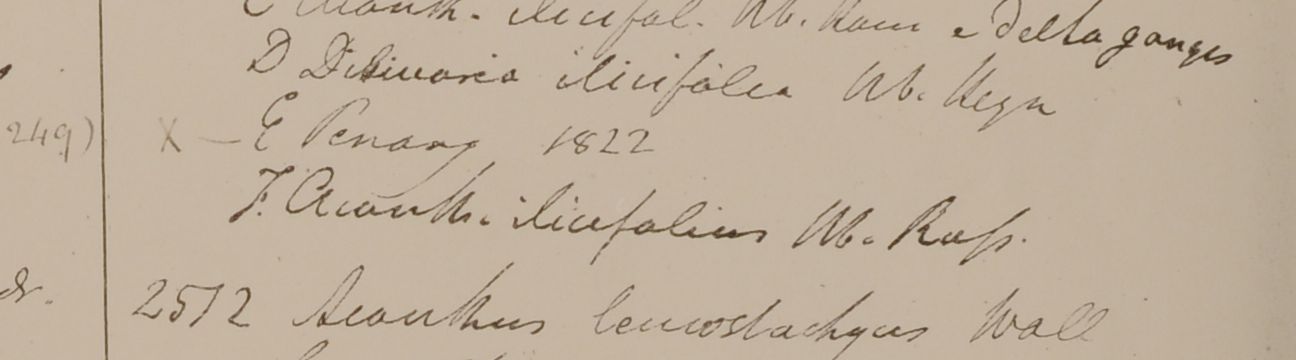 C Acanth. ilicifol. Hb. Ham e Delta ganges
D Dilivaria ilicifolea Hb. Heyn
249) X — E Penang 1822
F. Acanth. ilicifolius Hb. Roxb.
2512 Acanthus leucostachyus Wall